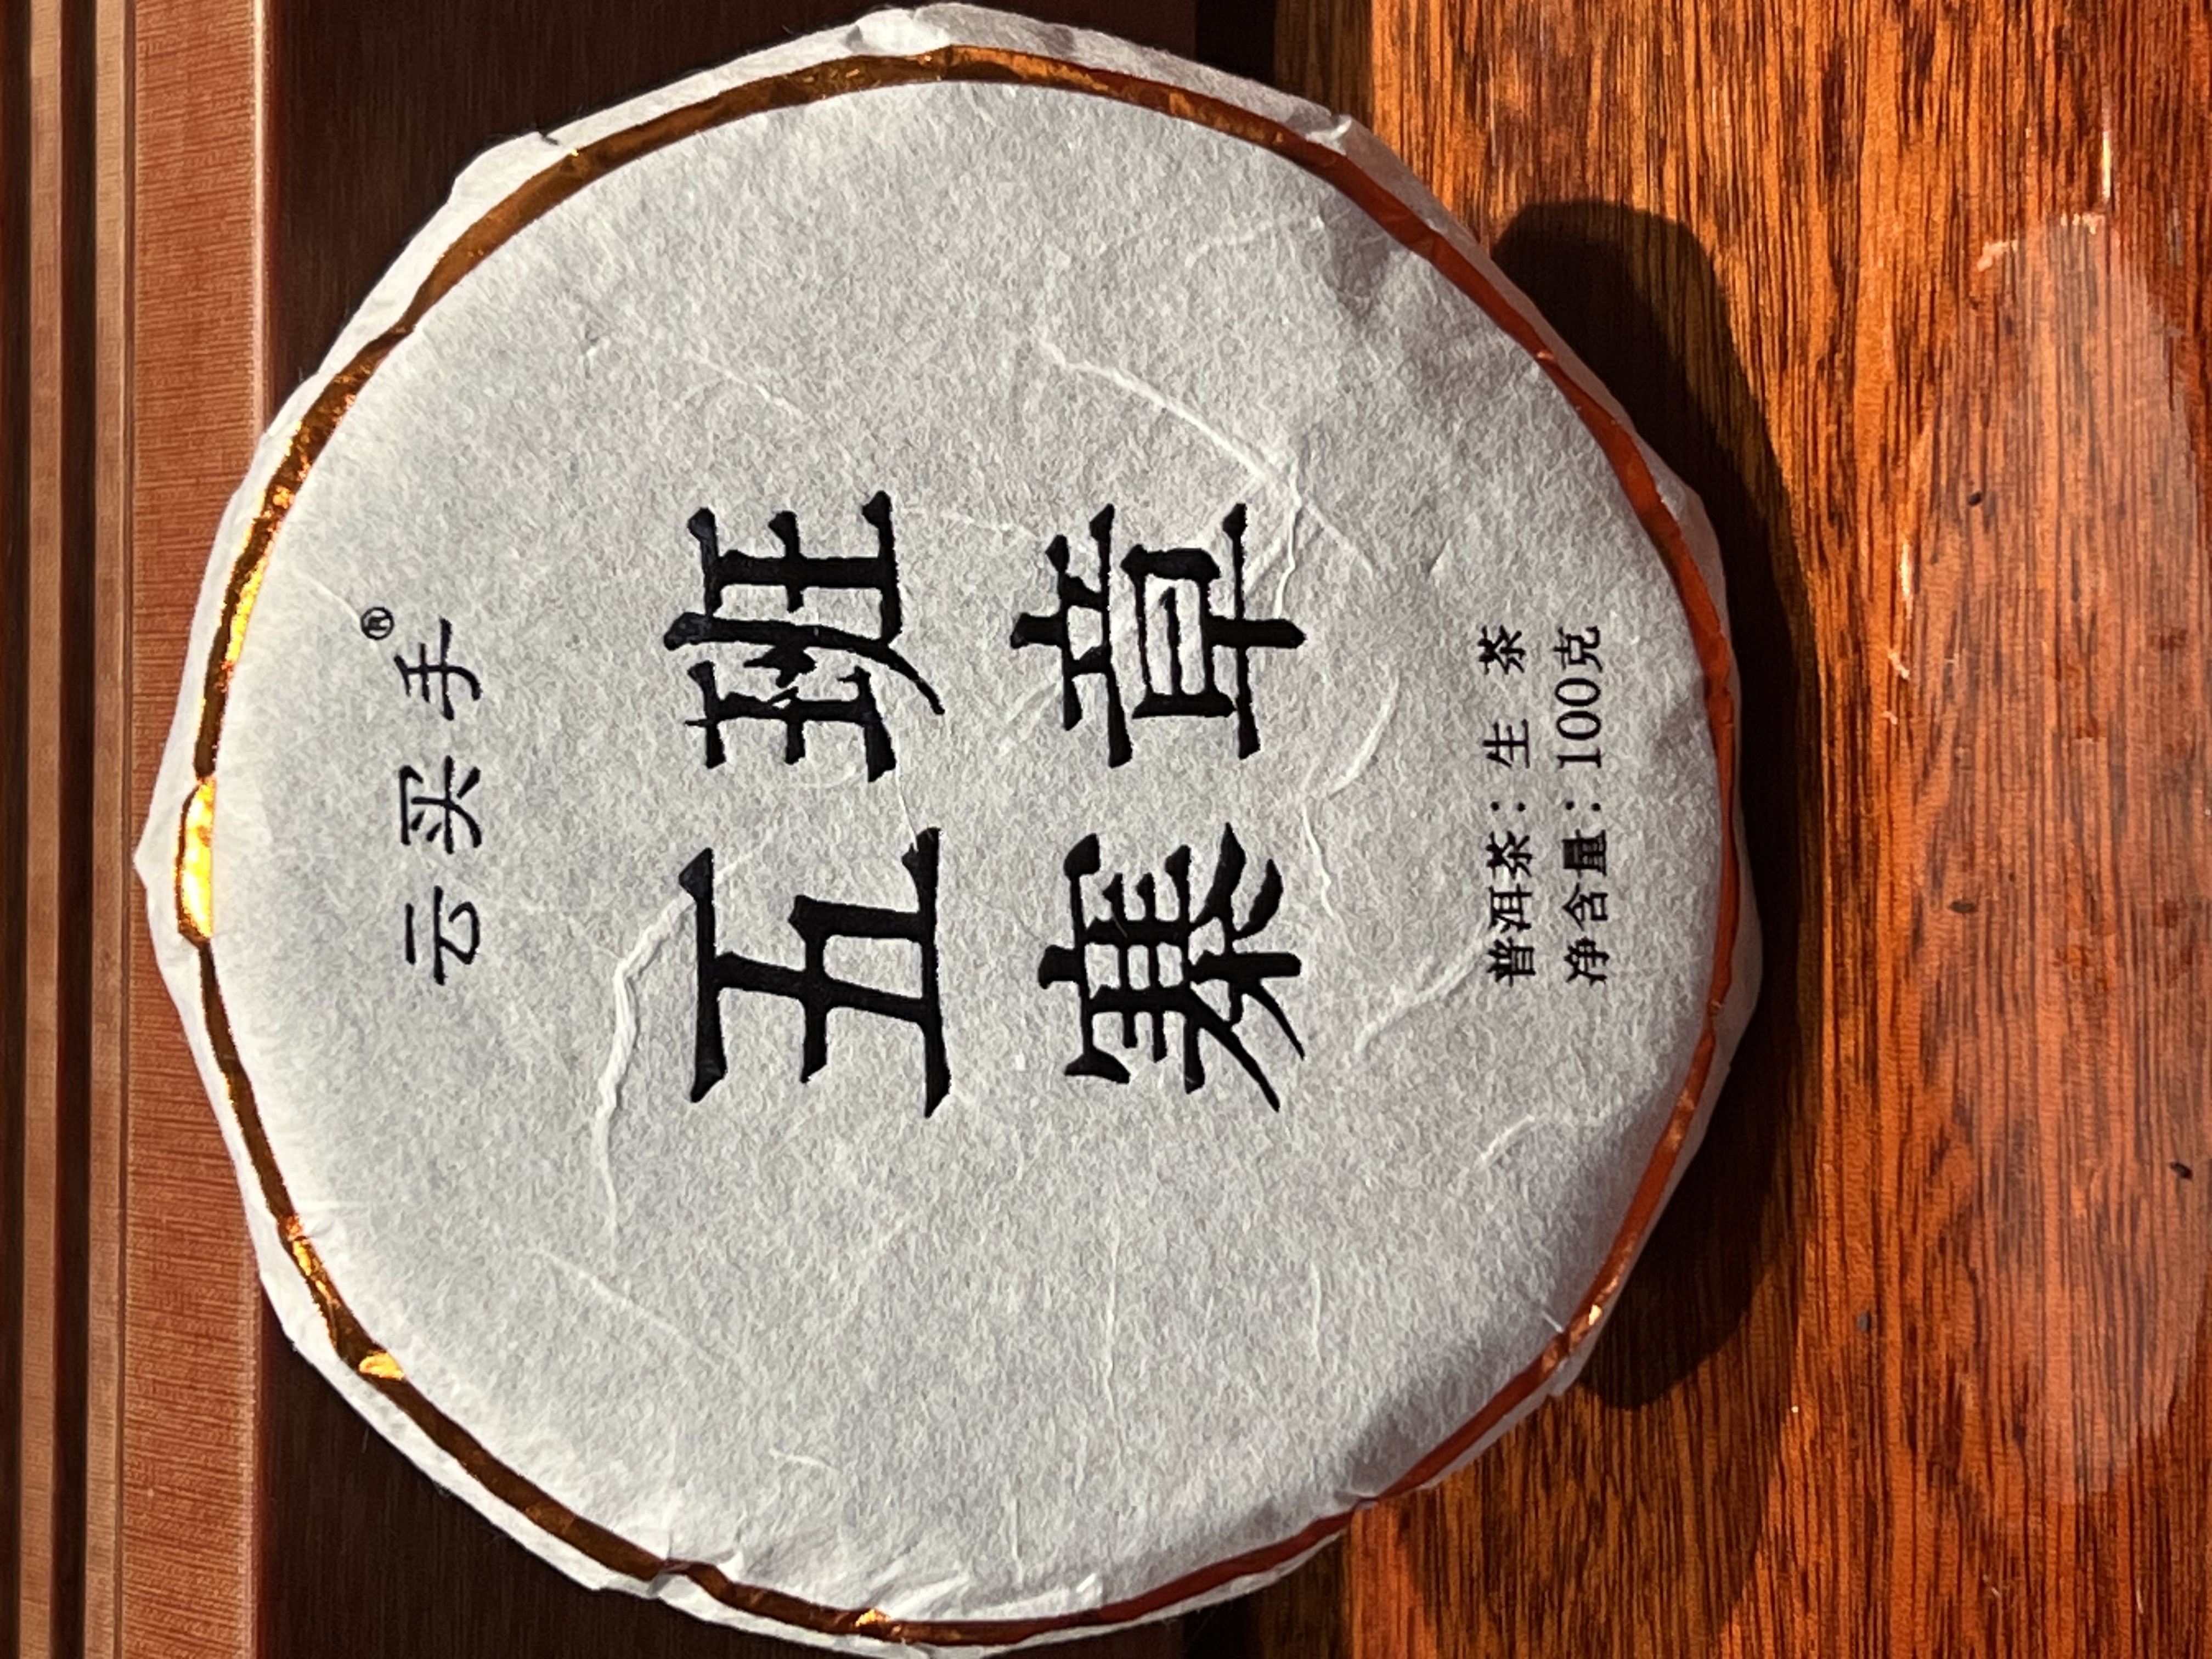 云买手®
班章
五寨
普洱茶：生 茶
净含量：100克